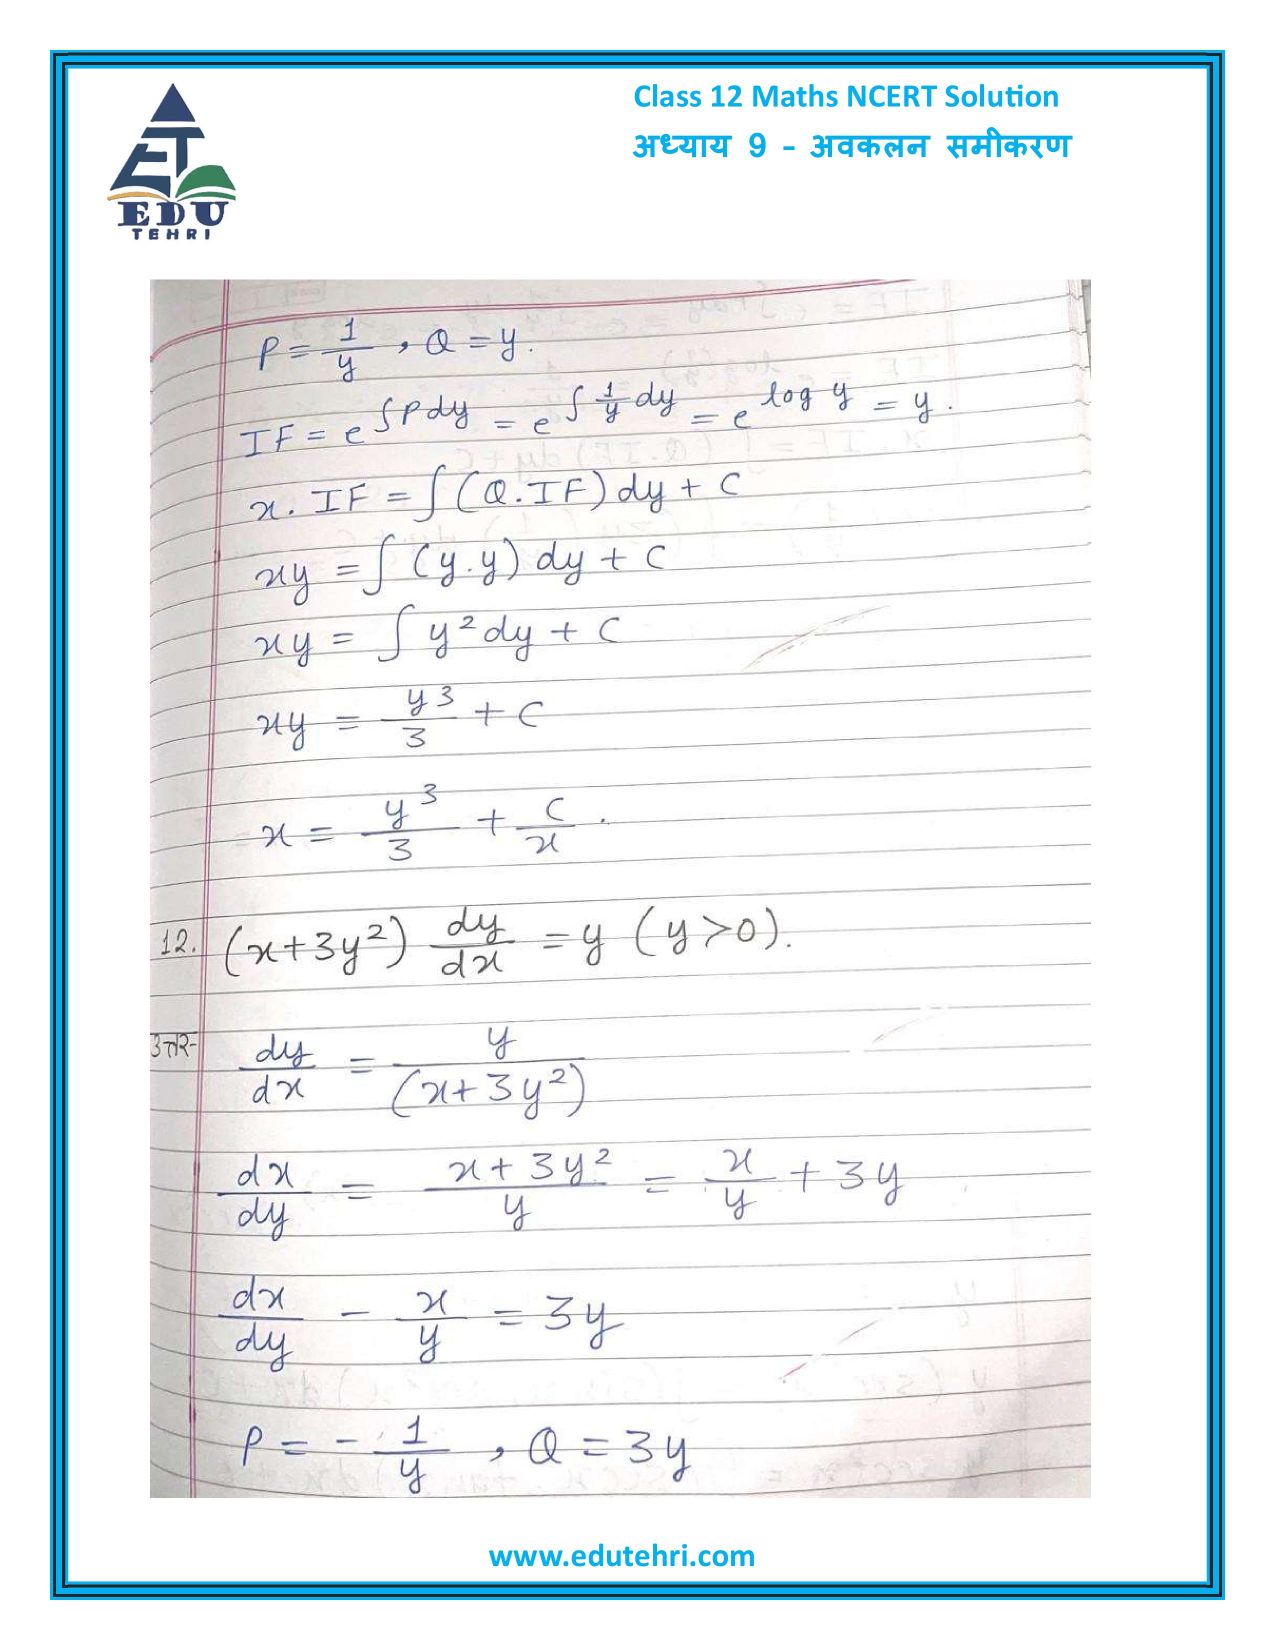 Class 12 Maths NCERT Solution
अध्याय 9 - अवकलन समीकरण
EDU
TEHRI
P = 1/y , Q = y.
IF = e^∫Pdy = e^∫1/y dy = e^log y = y.
x. IF = ∫(Q.IF)dy + C
xy = ∫(y.y) dy + C
xy = ∫y²dy + C
xy = y³/3 + C
x = y³/3 + C/x .
12. (x+3y²) dy/dx = y (y>0).
उत्तर- dy/dx = y/(x+3y²)
dx/dy = x+3y²/y = x/y + 3y
dx/dy - x/y = 3y
P = - 1/y , Q = 3y
www.edutehri.com